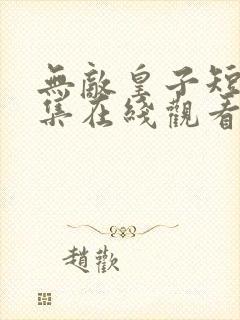 無敵皇子短
集在綫觀看
趙歡